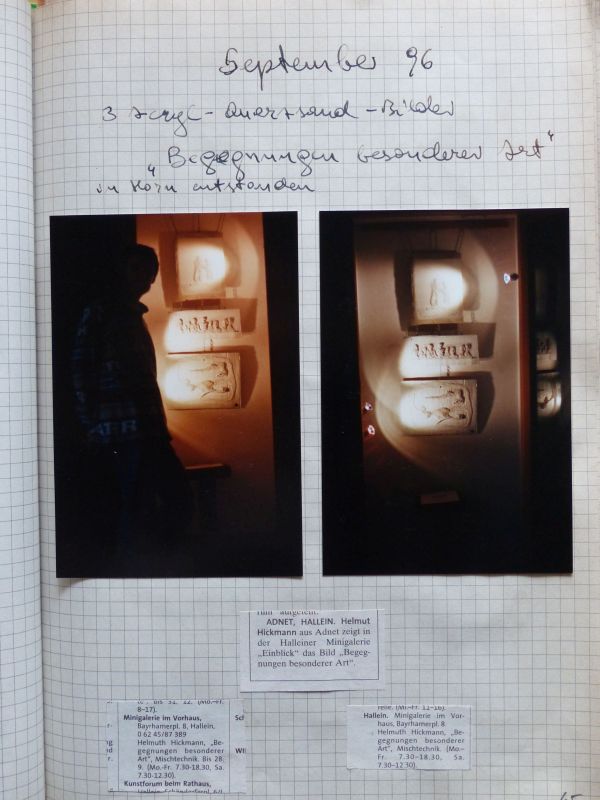 September 96
3 Acryl-Quarzsand-Bilder
„Begegnungen besonderer Art“
in Köln entstanden
rum aufgeteilt.
ADNET, HALLEIN. Helmut
Hickmann aus Adnet zeigt in
der Halleiner Minigalerie
„Einblick“ das Bild „Begeg-
nungen besonderer Art“.
bis 31. 12. (Mo.-Fr.
8–17).
Minigalerie im Vorhaus,
Bayrhamerpl. 8, Hallein,
0 62 45/87 389
Helmuth Hickmann, „Be-
gegnungen besonderer
Art“, Mischtechnik. Bis 28.
9. (Mo.-Fr. 7.30-18.30, Sa.
7.30-12.30).
Kunstforum beim Rathaus,
Sc
WI
(Mi.-Fr. 11–16).
Hallein. Minigalerie im Vor-
haus, Bayrhamerpl. 8
Helmuth Hickmann, „Be-
gegnungen besonderer
Art“, Mischtechnik. (Mo.–
Fr. 7.30–18.30, Sa.
7.30–12.30).